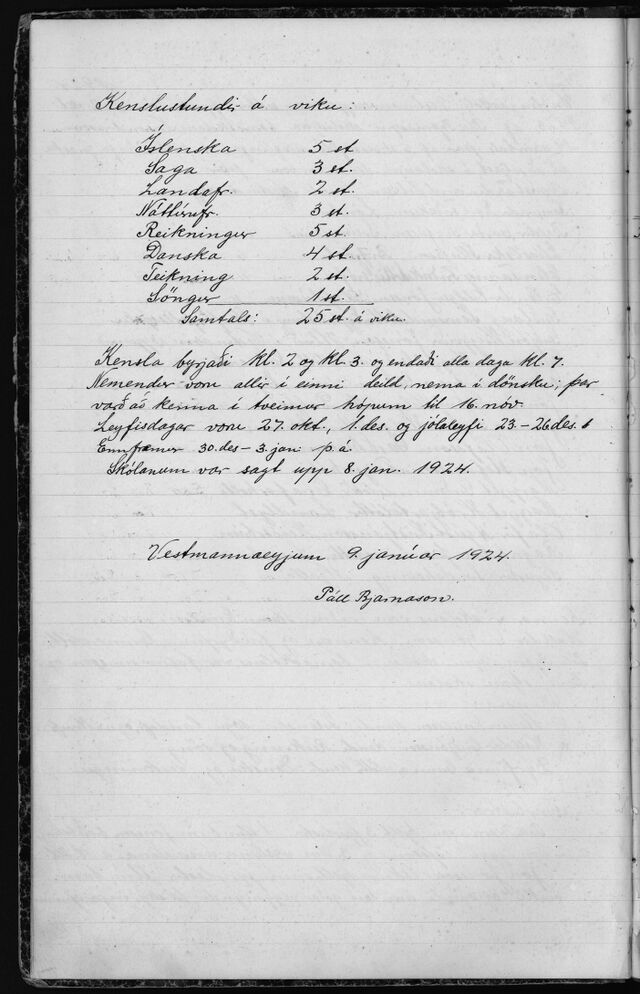 Kenslustundir á viku:
Íslenska 5 st
Saga 3 st.
Landafr. 2 st.
Náttúrufr. 3 st.
Reikningur 5 st.
Danska 4 st.
Teikning 2 st.
Söngur 1 st.
Samtals: 25 st. á viku.
Kensla byrjaði kl. 2 og kl. 3. og endaði alla daga kl. 7.
Nemendur voru allir í einni deild, nema í dönsku; þar
varð að kenna í tveimur hópum til 16. nóv.
Leyfisdagar voru 27. okt., 1. des. og jólaleyfi 23-26 des.
Ennfremur 30. des - 3. jan. þ. á.
Skólanum var sagt upp 8. jan. 1924.
Vestmannaeyjum 9. janúar 1924.
Páll Bjarnason.